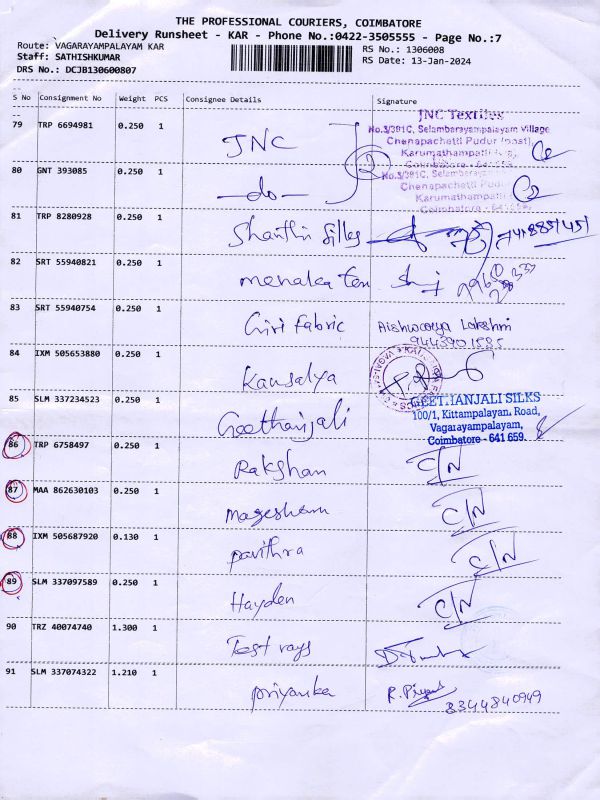 THE PROFESSIONAL COURIERS, COIMBATORE
Delivery Runsheet - KAR - Phone No.:0422-3505555 - Page No.:7
Route: VAGARAYAMPALAYAM KAR
RS No.: 1306008
Staff: SATHISHKUMAR
RS Date: 13-Jan-2024
DRS No.: DCJB130600807
S No Consignment No Weight PCS Consignee Details Signature
79 TRP 6694981 0.250 1 JNC
JNC Textiles
No.3/391C, Selambarayampalayam Village
Chenapachetti Pudur (post)
Karumathampatti
Coimbatore - 641 659.
2
80 GNT 393085 0.250 1 -do-
No.3/391C, Selambarayam
Chenapachetti Pudu
Karumathampatti
Coimbatore - 641
81 TRP 8280928 0.250 1 Shanthi Silks
82 SRT 55940821 0.250 1 menaka Tex
83 SRT 55940754 0.250 1 Giri Fabric Aishwarya Lakshmi
9443901585
84 IXM 505653880 0.250 1 Kausalya
85 SLM 337234523 0.250 1 Geethanjali
GEETHANJALI SILKS
100/1, Kittampalayan. Road,
Vagarayampalayam,
Coimbatore - 641 659.
86 TRP 6758497 0.250 1 Rakshan C/N
87 MAA 862630103 0.250 1 Magesham C/N
88 IXM 505687920 0.130 1 pavithra C/N
89 SLM 337097589 0.250 1 Hayden C/N
90 TRZ 40074740 1.300 1 Test rays
91 SLM 337074322 1.210 1 priyanka R. Priyanka
8344840949